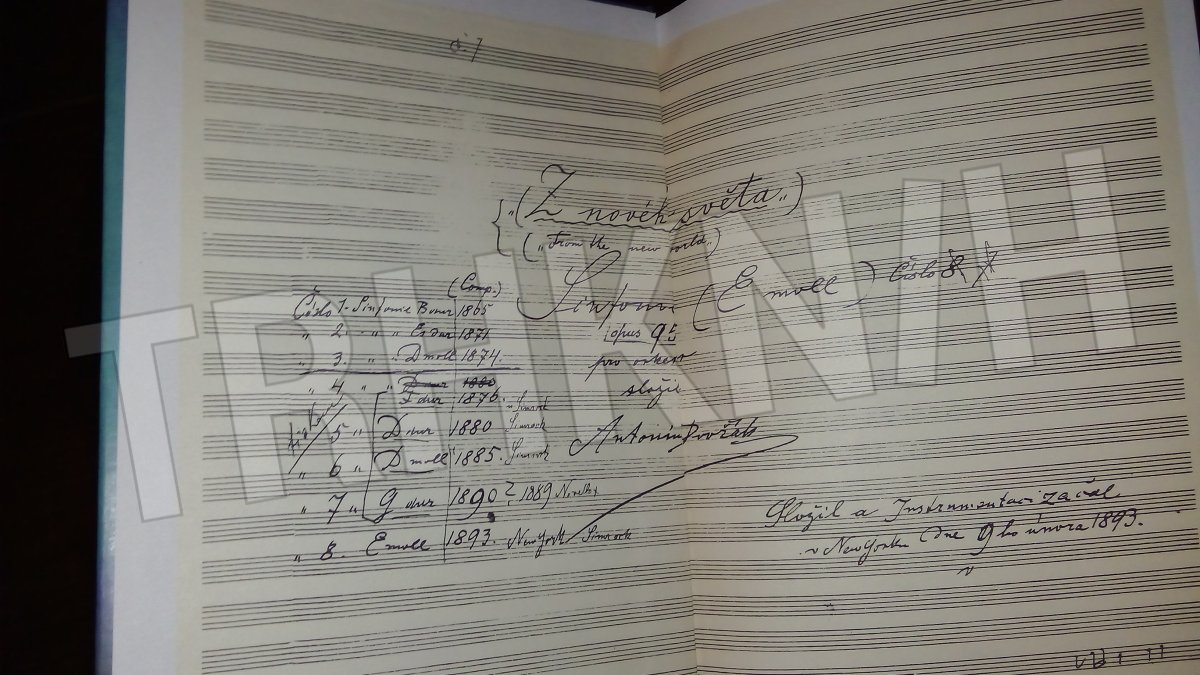 č. 7
„(Z novéh světa„)
(„From the new world„)
Sinfonie (E moll) Číslo 8
opus 95
pro orkestr
složil
Antonín Dvořák
(Comp.)
Číslo 1 - Sinfonie B dur 1865
„ 2. - „ „ Es dur 1871
„ 3. „ „ D moll 1874.
„ 4 „ „ D dur 1880
F dur 1876. Simrock
5 „ D dur 1880 Simrock
„ 6 „ D moll 1885. Simrock
„ 7 „ G dur 1890? 1889 Novello
„ 8. E moll 1893. New York Simrock
Složil a Instrumentaci začal
v New Yorku dne 9ho února 1893.
TRHKNIH